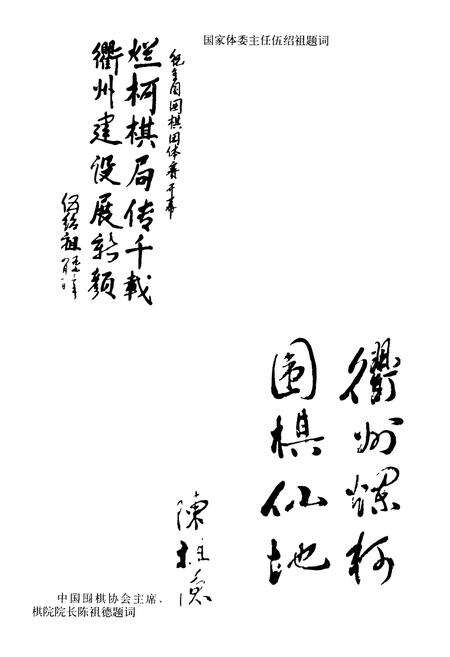 国家体委主任伍绍祖题词
全国围棋团体赛开幕
烂柯棋局传千载
衢州建设展新颜
伍绍祖
衢州爛柯
围棋仙地
陳祖德
中国围棋协会主席、
棋院院长陈祖德题词